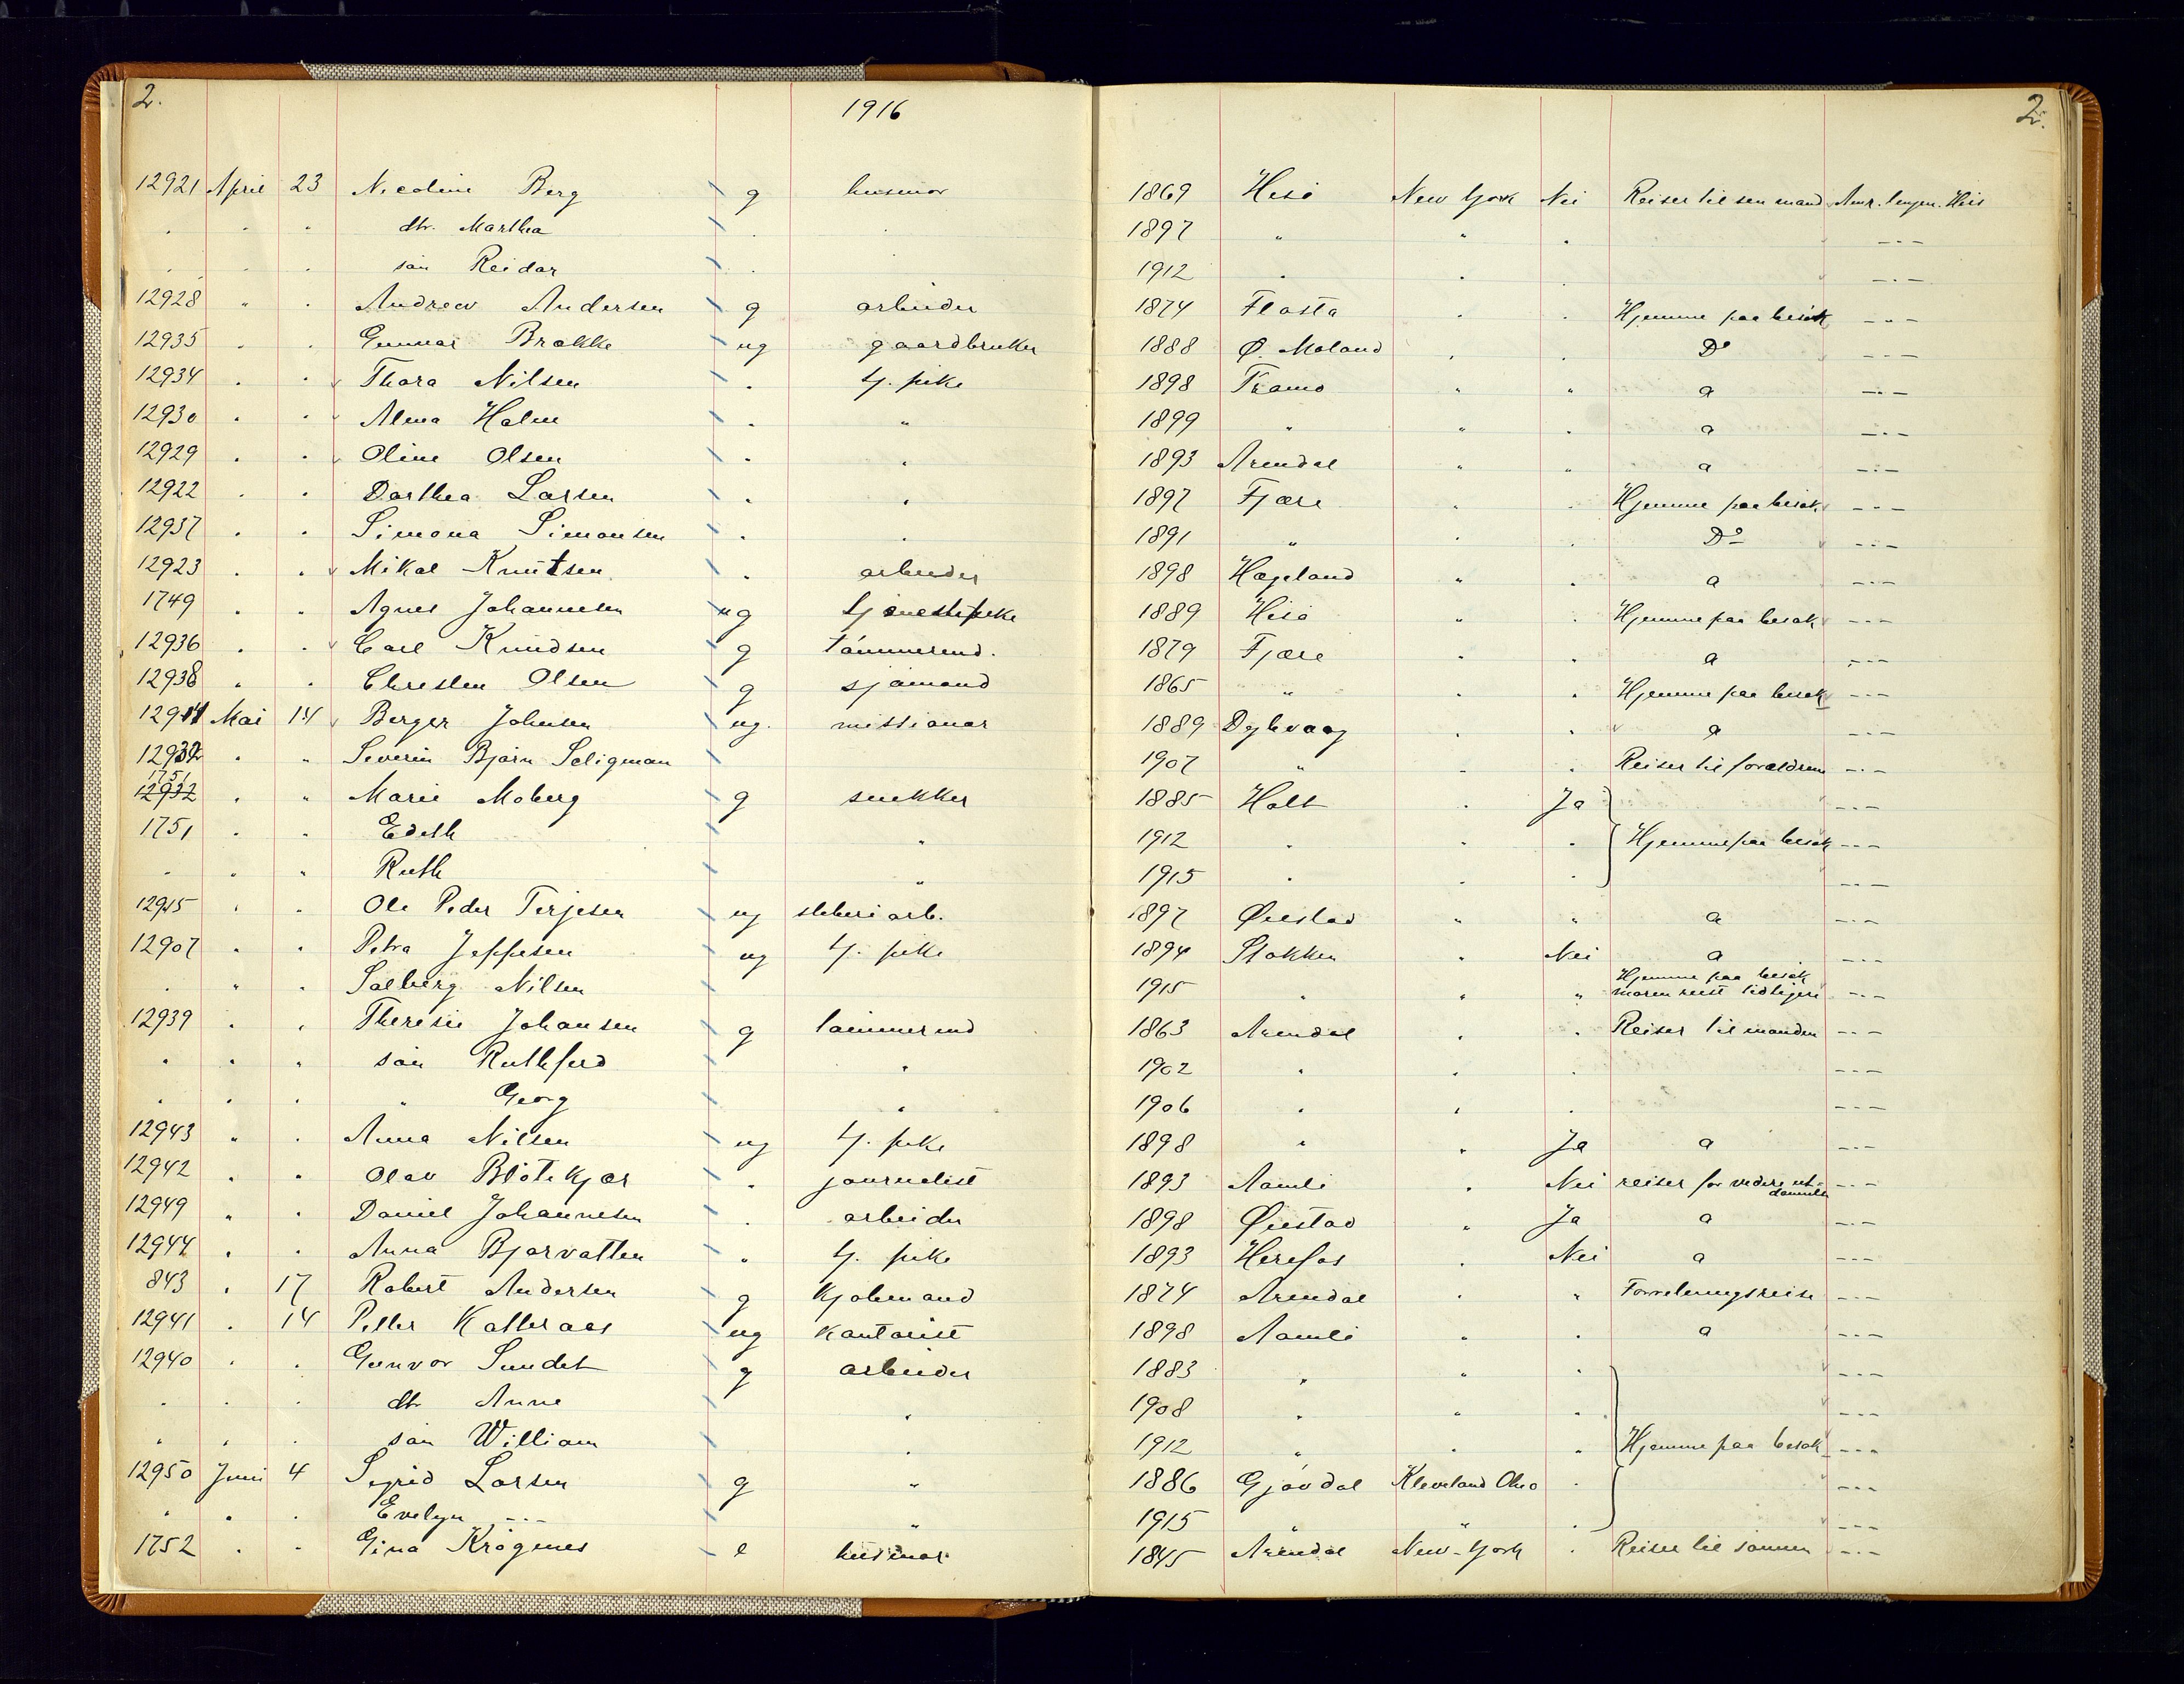 2. 1916 2.
12921 April 23 Nicoline Berg g husmor 1869 Hisö New York Nei Reiser til sin mand Amr. linjen. Hiis
" " " dtr. Martha " " 1897 " " " -"-
" " " sön Reidar " 1912 " " " -"-
12928 " " Andrew Andersen g arbeider 1874 Flosta " " Hjemme paa besök -"-
12935 " " Gunnar Brække ug gaardbruker 1888 Ø. Moland " " Do -"-
12934 " " Thora Nilsen " tj. pike 1898 Tromö " " a -"-
12930 " " Alma Holm " " 1899 " " " a -"-
12929 " " Oline Olsen " " 1893 Arendal " " a -"-
12922 " " Dorthea Larsen " " 1897 Fjære " " Hjemme paa besök -"-
12937 " " Simona Simonsen " " 1891 " " " Do -"-
12923 " " Mikal Knutsen " arbeider 1898 Hægeland " " a -"-
1749 " " Agnes Johannesen ug tjenestepike 1889 Hisö " " Hjemme paa besök -"-
12936 " " Carl Knudsen g tömmermd. 1879 Fjære " " a -"-
12938 " " Christen Olsen g sjömand 1865 " " " Hjemme paa besök -"-
Mai 14 Berger Johnsen ug. missionær 1889 Dybvaag " " a -"-
" " Severin Bjørn Seligman 1907 " " " Reiser til forældrene -"-
1751
12932 " " Marie Moberg g snekker 1885 Holt " Ja -"-
1751 " " Edith " 1912 " " " Hjemme paa besök -"-
" " " Ruth " 1915 " " " -"-
12945 " " Ole Peder Terjesen ug sliberiarb. 1897 Øiestad " " a -"-
12907 " " Petra Jeppesen ug tj. pike 1894 Stokken " Nei a -"-
Hjemme paa besök
" " " Solberg Nilsen 1915 " " " moren reist tidligere -"-
12939 " " Theresie Johansen g tömmermd 1863 Arendal " " Reiser til manden -"-
" " " sön Ruthferd " 1902 " " " -"-
" " " " Georg " 1906 " " " -"-
12943 " " Anna Nilsen ug tj. pike 1898 " " Ja a -"-
12942 " " Olav Blötekjær " journalist 1893 Aamli " Nei reiser for videre ut-
dannelse -"-
12949 " " Daniel Johannesen " arbeider 1898 Øiestad " Ja a -"-
12944 " " Anna Bjorvatten " tj. pike 1893 Herefos " Nei a -"-
843 " 17 Robert Andersen g kjöbmand 1874 Arendal " " Forretningsreise -"-
12941 " 14 Petter Katteraas ug kontorist 1898 Aamli " " a -"-
12940 " " Gunvor Sundet g arbeider 1883 " " " -"-
" " " dtr Anne " 1908 " " " -"-
" " " sön William " 1912 " " " Hjemme paa besök -"-
12950 Juni 4 Sigrid Larsen g " 1886 Gjøvdal Kleveland Ohio " -"-
" " " Evelyn -"- " 1915 " " " -"-
1752 " " Gina Krögenes e husmor 1845 Arendal New-York " Reiser til sönnen -"-